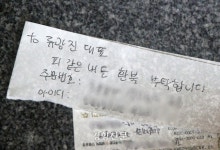 To 류광진 대표
피 같은 내 돈 환불 부탁합니다.
주문번호:
아이디